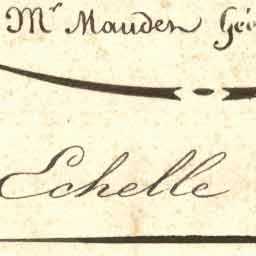 Mr Mauden Géo
Echelle